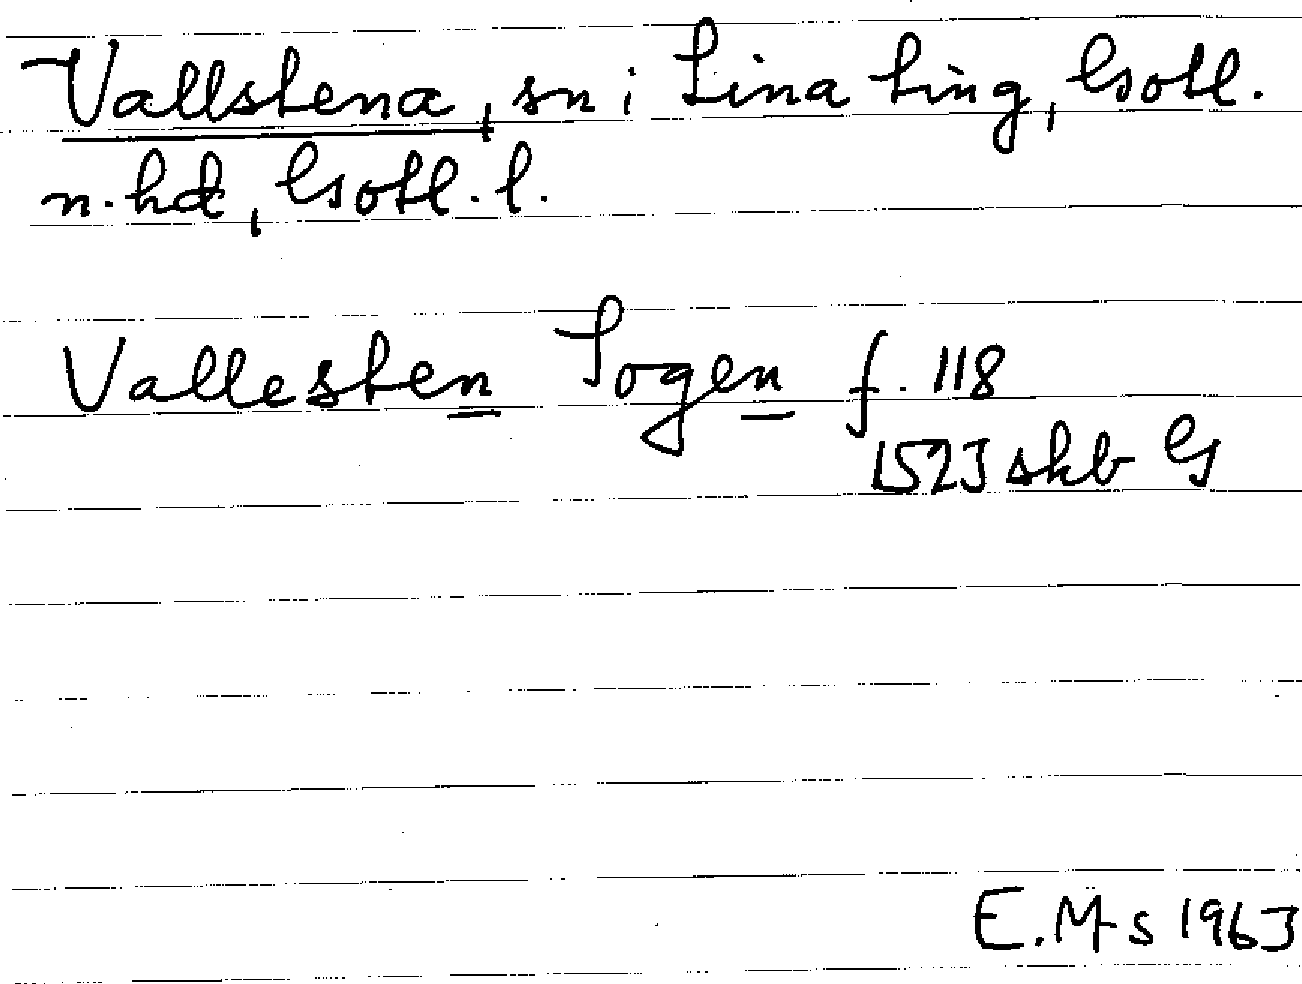 Vallstena, sn i Lina ting, Gotl.
n. hd, Gotl. l.
Vallesten Sogen f. 118
1523 skb G
E. M-s 1963